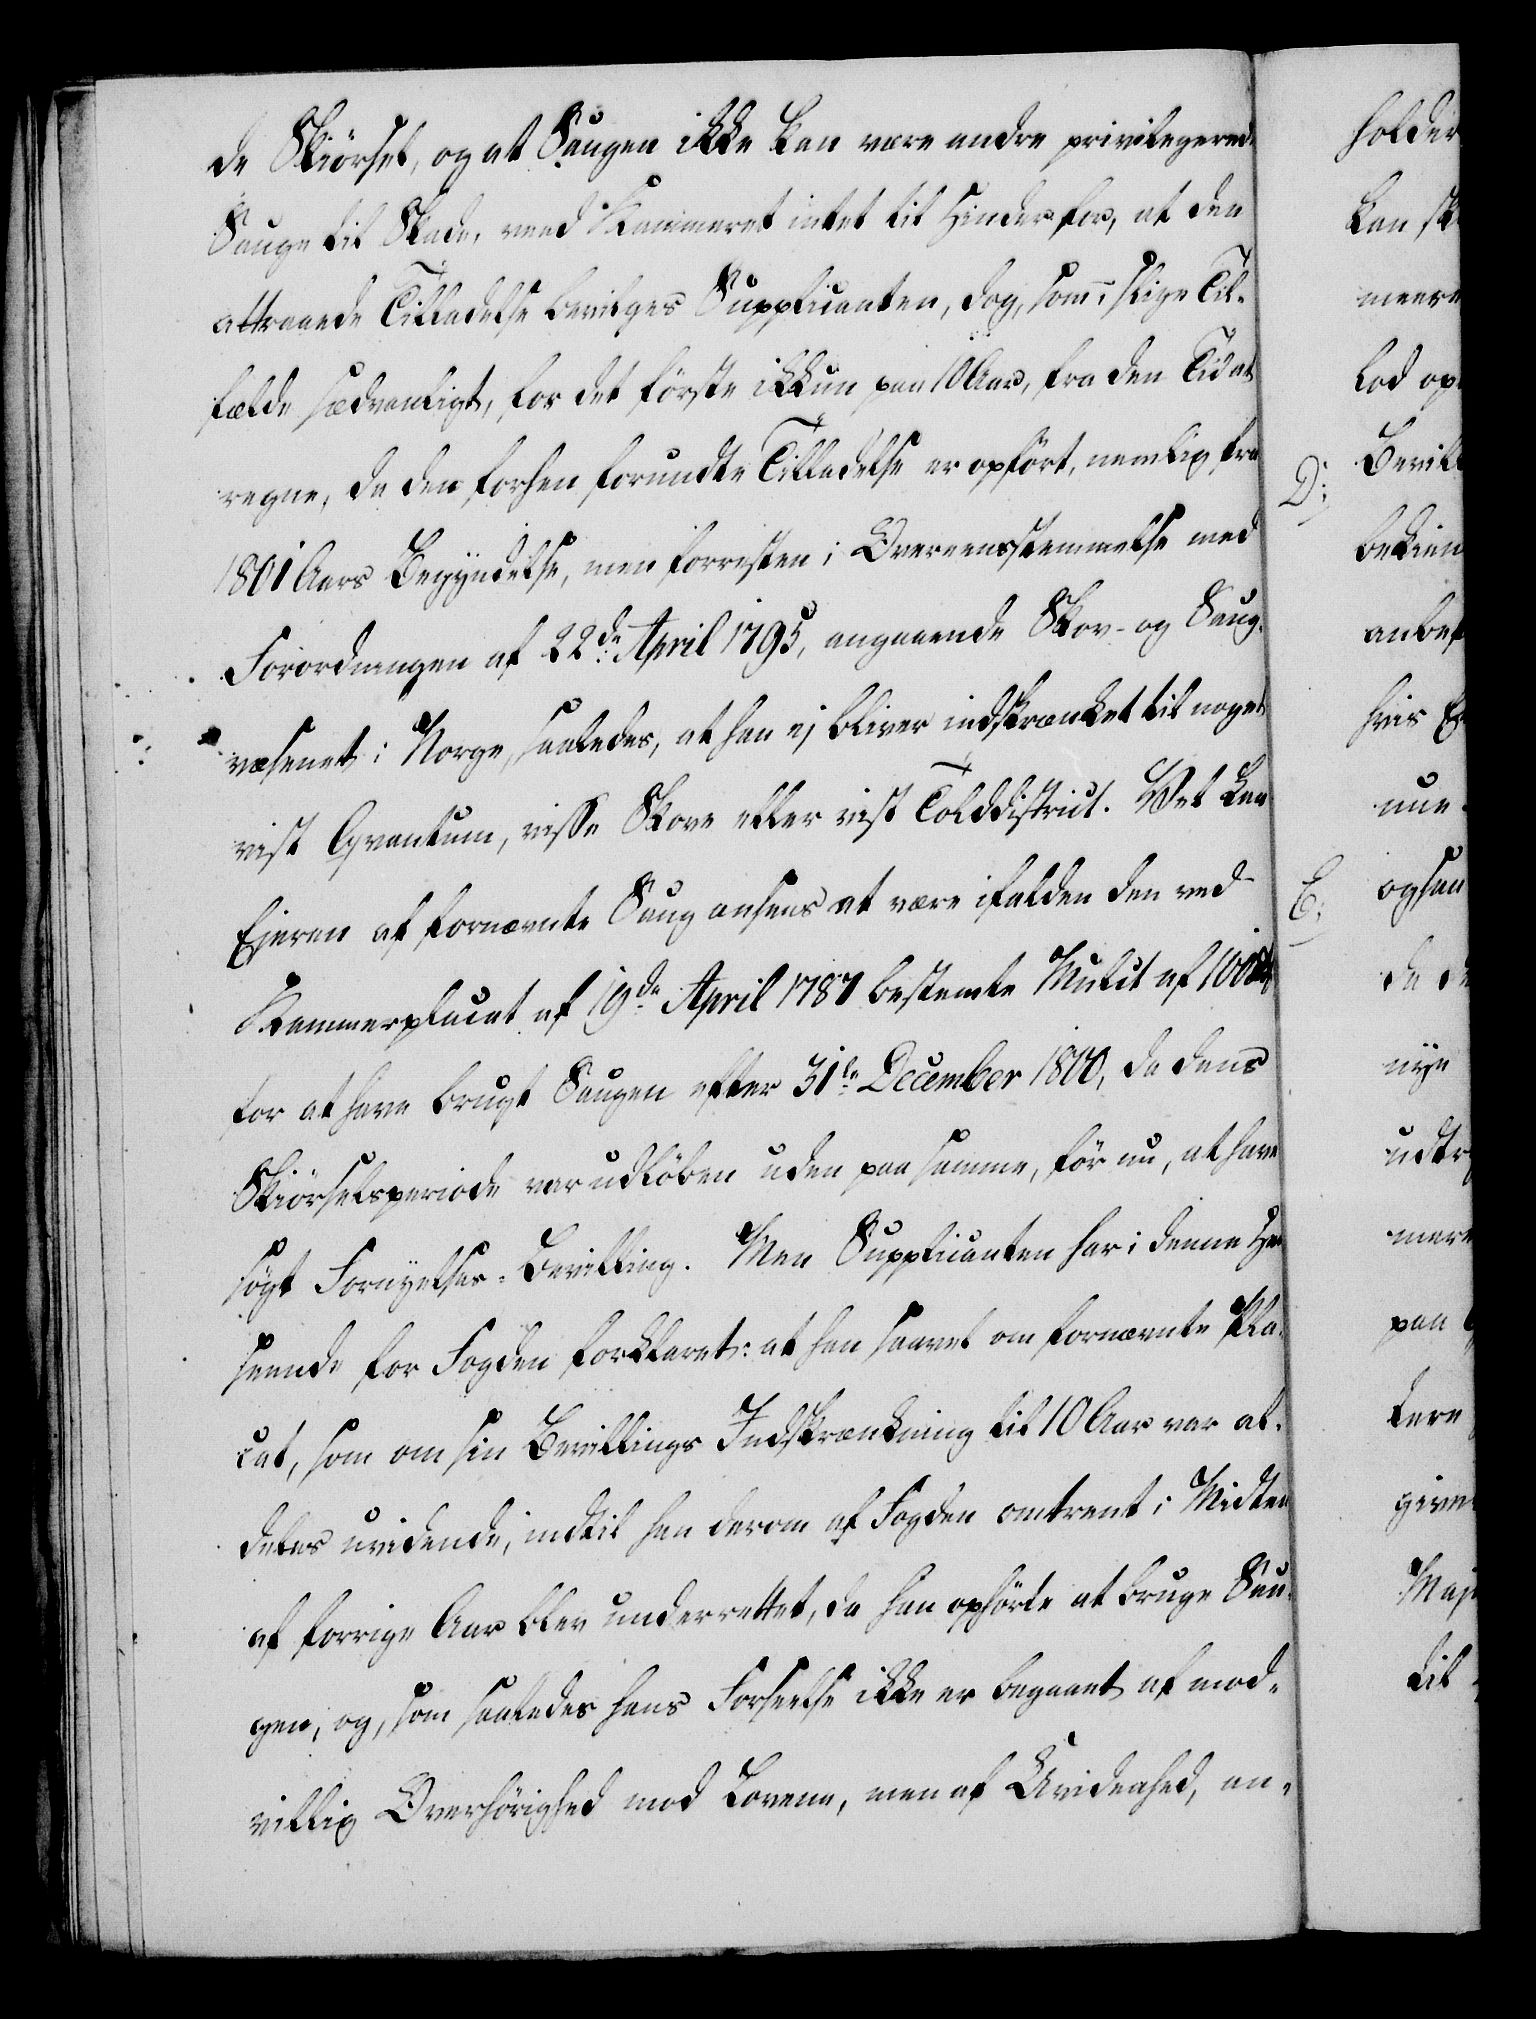 de Skiörsel, og at Saugen ikke kan være andre privilegerede
Sauge til Skade, veed Kammeret intet til Hinder for, at den
attraaede Tilladelse bevilges Supplicanten, dog, som i slige Til-
fælde sædvanligt, for det förste ikkun paa 10 Aar, fra den Tid at
regne, da den forhen forundte Tilladelse er ophört, nemlig fra
1801 Aars Begyndelse, men forresten i Overeensstemmelse med
Forordningen af 22de April 1795, angaaende Skov- og Saug-
væsenet i Norge, saaledes, at han ej bliver indskrænket til noget
vist Qvantum, visse Skove eller vist Tolddistrict. Vel kan
Ejeren af fornævnte Saug ansees at være ifalden den ved
Kammerplacat af 19de April 1787 bestemte Mulct af 100 Rdl.
for at have brugt Saugen efter 31te December 1800, da dens
Skiörselsperiode var udlöben uden paa samme, för nu, at have
sögt Fornyelses-Bevilling. Men Supplicanten har i denne Hen-
seende for Fogden forklaret: at han saavel om fornævnte Pla-
cat, som om sin Bevillings Indskrænkning til 10 Aar var al-
deles uvidende, indtil han derom af Fogden omtrent i Midten
af forrige Aar blev underrettet, da han ophörte at bruge Sau-
gen, og, som saaledes hans Forseelse ikke er begaaet af mod-
villig Overhörighed mod Lovene, men af Uvidenhed, an-
holder
kan
meere
lod
D:
Bevill
bekien
anbef
hvis
nue
E:
ogsaa
da de
nye
udtr
mere
paa
give
Maj
til